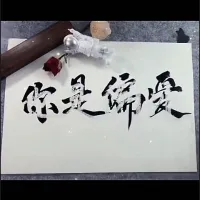 你是偏愛